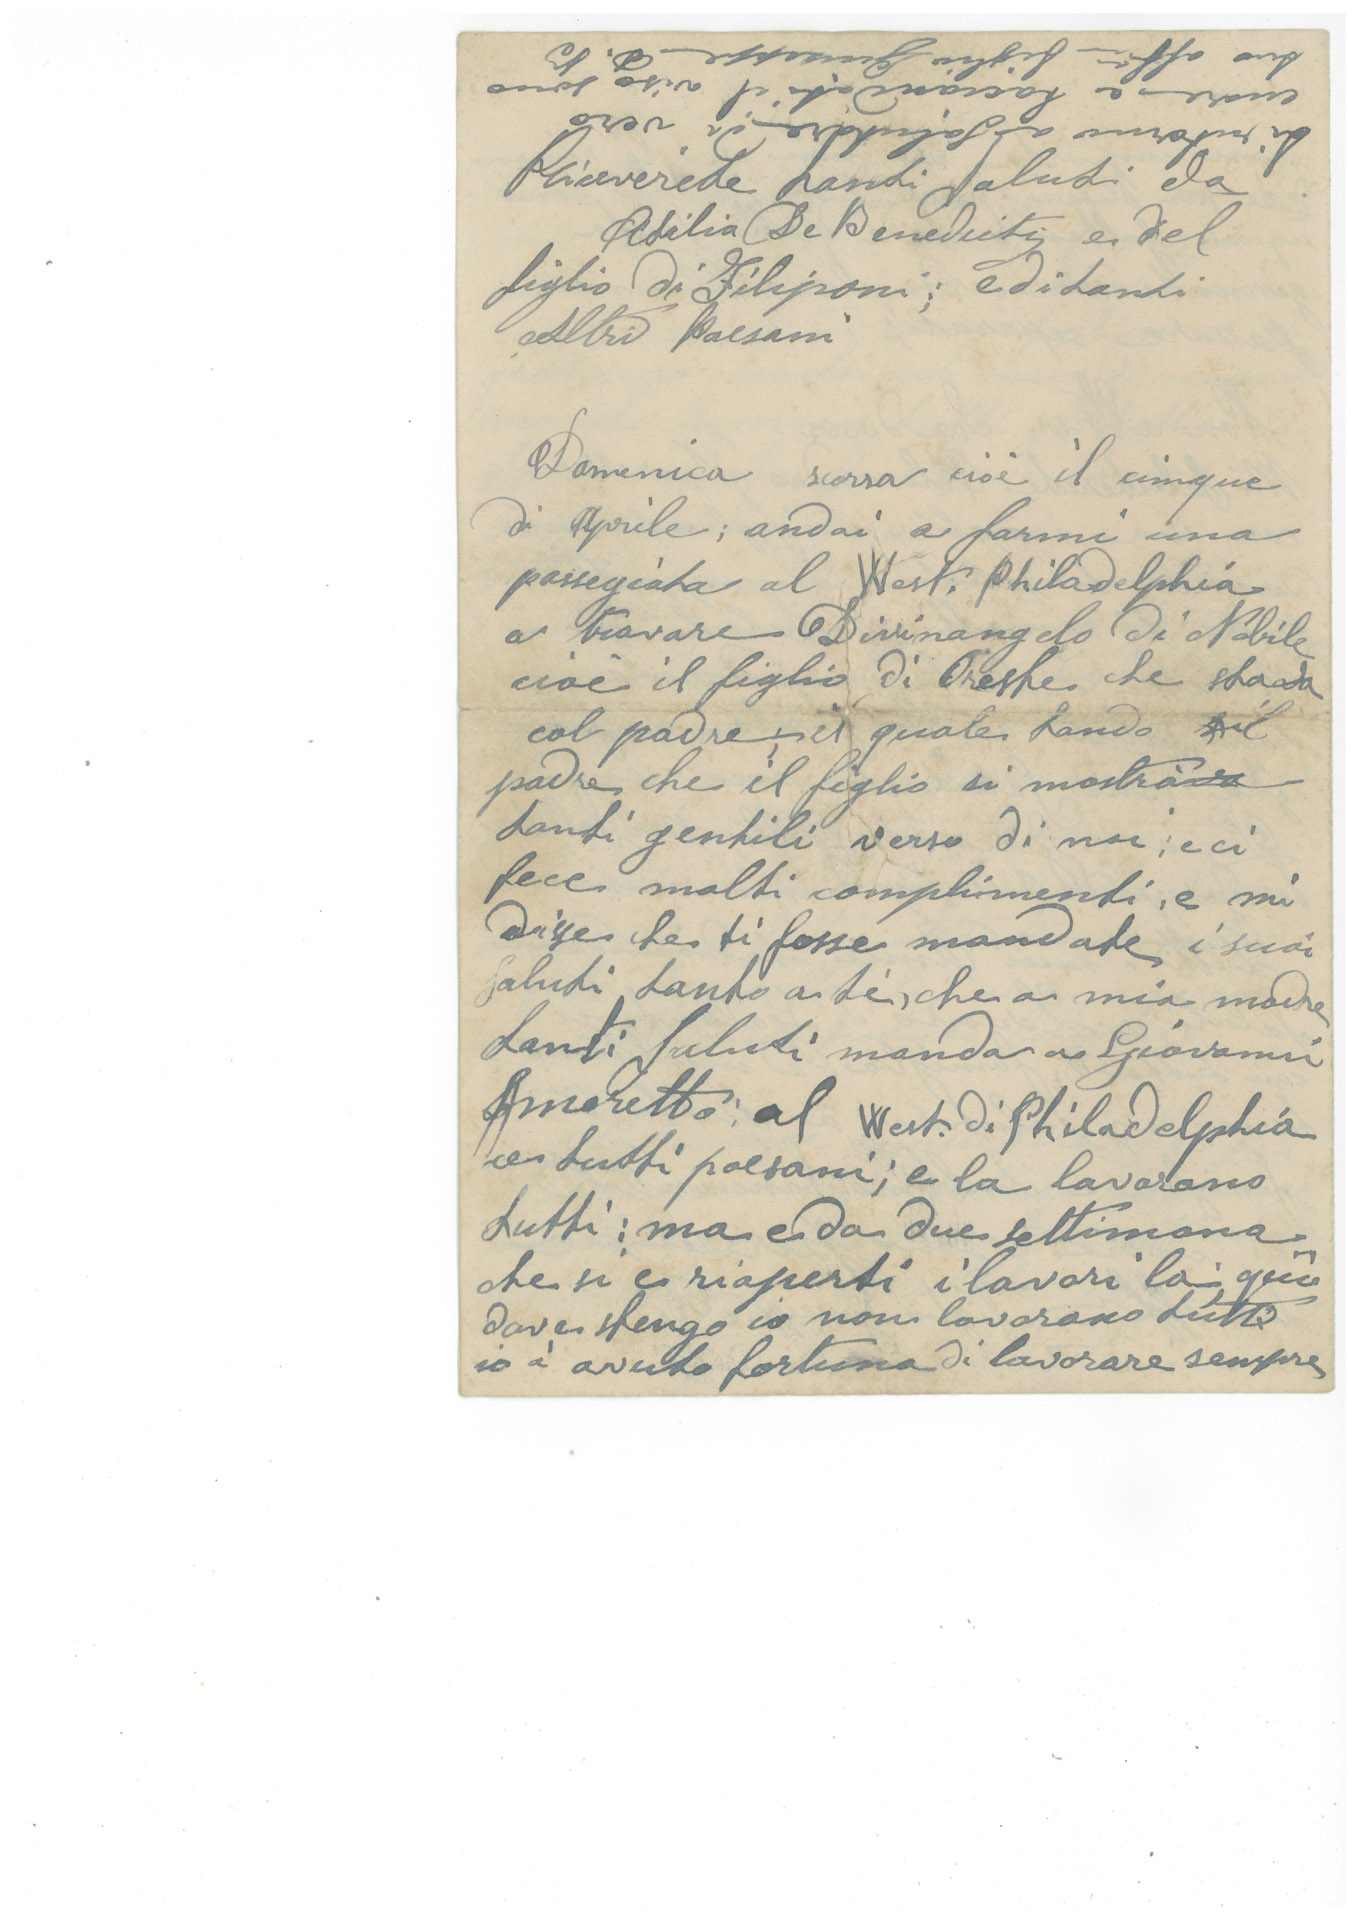 Riceverete tanti saluti da
Attilia De Benedictis e del
figlio di Filiponi; e di tanti
altri Paesani
Domenica scorsa cioè il cinque
di Aprile; andai a farmi una
passegiata al West. Philadelphia
a trovare Divinangelo di Nobile
cioè il figlio di Oreste che sta
col padre; il quale tando il
padre che il figlio si mostra
tanti gentili verso di noi; e ci
fece molti complimenti, e mi
disse che ti fosse mandate i suoi
saluti tanto a te, che a mia madre
tanti saluti manda a Giovanni
Amoretto; al West. di Philadelphia
ce tutti paesani; e la lavorano
tutti; ma e da due settimana
che si e riaperti i lavori la; qui
dove stengo io non lavorano tutti
io à avuto fortuna di lavorare sempre
di ritorno a salutare di vero
cuore e baciandoti il viso sono
tuo aff. figlio Giuseppe D.